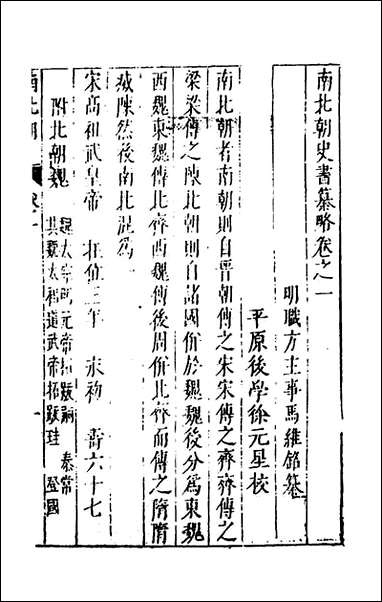 南北朝史書纂略卷之一
明職方主事馬維銘纂
平原後學徐元星校
南北朝者南朝則自晉朝傳之宋宋傳之齊齊傳之
梁梁傳之陳北朝則自諸國併於魏魏後分為東魏
西魏東魏傳北齊西魏傳後周併北齊而傳之隋隋
滅陳然後南北混為一
宋高祖武皇帝 在位三年 永初 壽六十七
附北朝魏
魏太宗明元帝拓跋嗣 泰常
其魏太祖道武帝拓跋珪 登國